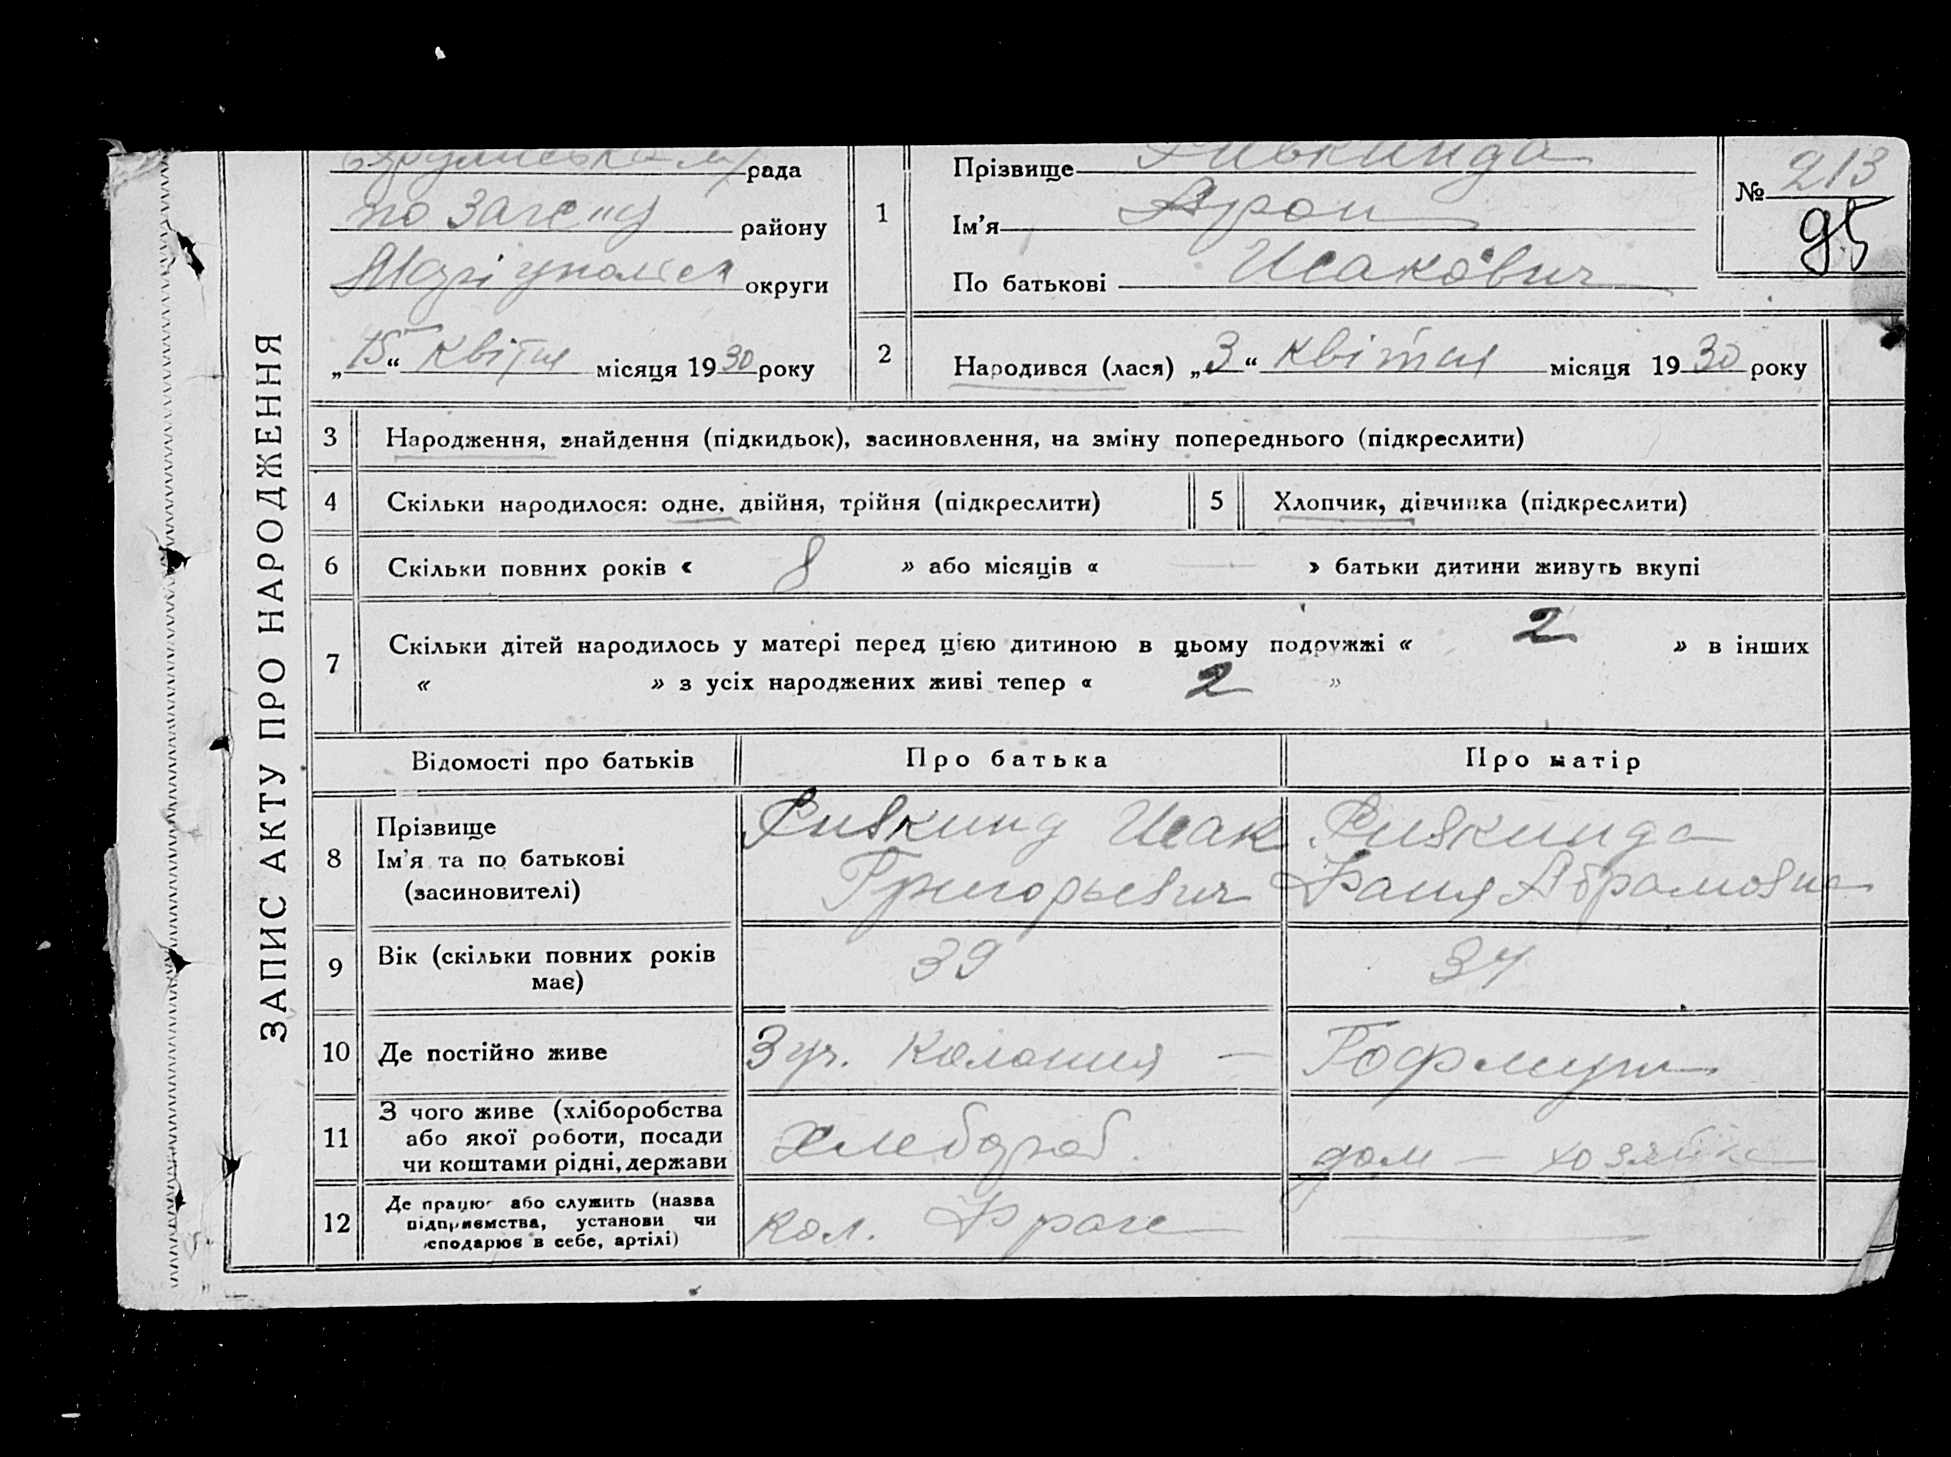 ЗАПИС АКТУ ПРО НАРОДЖЕННЯ
рада
району
округи
„15“ квітня місяця 1930 року
1
Прізвище Ривкинда
Ім’я Арон
По батькові Исакович
№ 213
95
2 Народився (лася) „3“ квітня місяця 1930 року
3 Народження, знайдення (підкидьок), засиновлення, на зміну попереднього (підкреслити)
4 Скільки народилося: одне, двійня, трійня (підкреслити) 5 Хлопчик, дівчинка (підкреслити)
6 Скільки повних років « 8 » або місяців « — » батьки дитини живуть вкупі
7 Скільки дітей народилось у матері перед цією дитиною в цьому подружжі « 2 » в інших
« » з усіх народжених живі тепер « 2 »
Відомості про батьків Про батька Про матір
8 Прізвище
Ім’я та по батькові
(засиновителі)
Ривкинд Исак
Григорьевич
Ривкинда
Фаня Абрамовна
9 Вік (скільки повних років
має)
39 34
10 Де постійно живе
3 уч. Колония —
11 З чого живе (хліборобства
або якої роботи, посади
чи коштами рідні, держави
хлебороб. дом — хозяйка
12 Де працює або служить (назва
підприємства, установи чи
сподарює в себе, артілі)
кол.